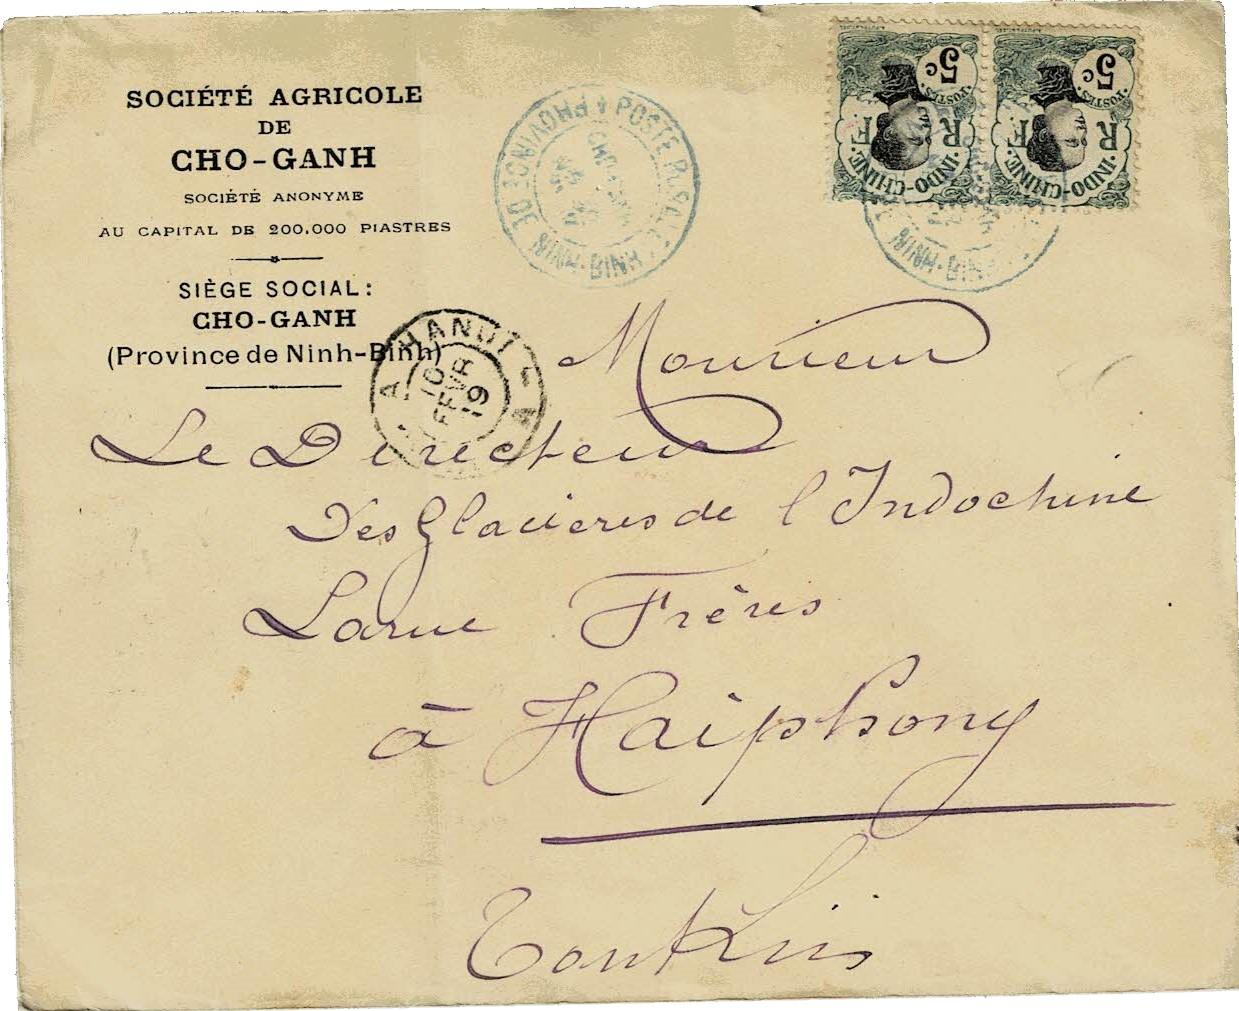 SOCIÉTÉ AGRICOLE
DE
CHO-GANH
SOCIÉTÉ ANONYME
AU CAPITAL DE 200.000 PIASTRES
SIÈGE SOCIAL:
CHO-GANH
(Province de Ninh-Binh)
PROVINCE DE NINH-BINH
POSTE RURALE
5c
POSTES
R F
INDO-CHINE
5c
POSTES
R F
INDO-CHINE
HANOI
A A
10
FEVR
19
Monsieur
Le Directeur
Des Glacieres de l'Indochine
Larue Frères
à Haiphong
Tonkin